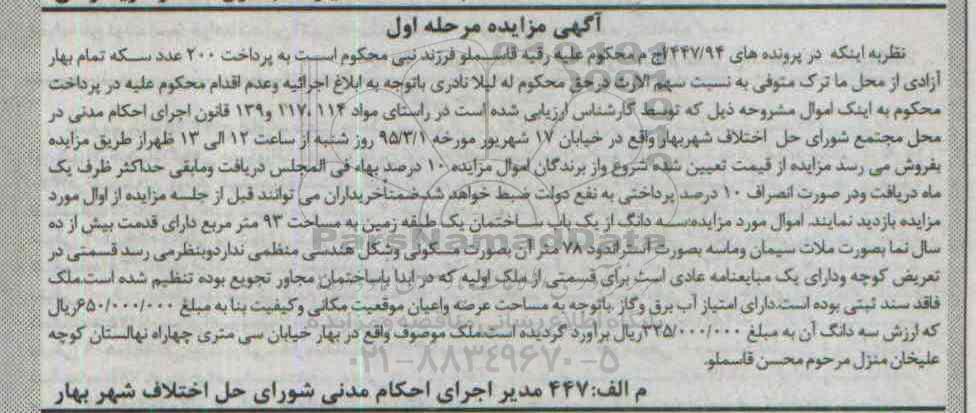 آگهی مزایده مرحله اول
نظربه اینکه در پرونده های ۴۴۷/۹۴/اج م محکوم علیه رقیه قاسـملو فرزند نبی محکوم اسـت به پرداخت ۲۰۰ عدد سـکه تمام بهار
آزادی از محل ما ترک متوفی به نسبت سهم الارث درحق محکوم له لیلا نادری باتوجه به ابلاغ اجرائیه وعدم اقدام محکوم علیه در پرداخت
محکوم به اینک اموال مشروحه ذیل که توسط کارشناس ارزیابی شده است در راستای مواد ۱۱۴، ۱۱۷ و ۱۳۹ قانون اجرای احکام مدنی در
محل مجتمع شورای حل اختلاف شهربهار واقع در خیابان ۱۷ شهریور مورخه ۹۵/۳/۱ روز شنبه از ساعت ۱۲ الی ۱۳ ظهراز طریق مزایده
بفروش می رسد مزایده از قیمت تعیین شده شروع واز برندگان اموال مزایده ۱۰ درصد بهاء فی المجلس دریافت ومابقی حداکثر ظرف یک
ماه دریافت ودر صورت انصراف ۱۰ درصد پرداختی به نفع دولت ضبط خواهد شدضمنتاخریداران می توانند قبل از جلسه مزایده از اوال مورد
مزایده بازدید نمایند. اموال مورد مزایده:سـه دانگ از یک باب سـاختمان یک طبقه زمین به مساحت ۹۳ متر مربع دارای قدمت بیش از ده
سال نما بصورت ملات سیمان وماسه بصورت استراندود ۷۸ متر آن بصورت مسکونی وشکل هندسی منظمی نداردوبنظرمی رسد قسمتی در
تعریض کوچه ودارای یک مبایعنامه عادی است برای قسمتی از ملک اولیه که در ابدا باساختمان مجاور تجویع بوده تنظیم شده است.ملک
فاقد سند ثبتی بوده است.دارای امتیاز آب برق وگاز باتوجه به مساحت عرصه واعیان موقعیت مکانی وکیفیت بنا به مبلغ ۶۵۰/۰۰۰/۰۰۰ریال
که ارزش سه دانگ آن به مبلغ ۳۲۵/۰۰۰/۰۰۰ریال برآورد گردیده است.ملک موصوف واقع در بهار خیابان سی متری چهاراه نهالستان کوچه
علیخان منزل مرحوم محسن قاسملو.
م الف:۴۴۷ مدیر اجرای احکام مدنی شورای حل اختلاف شهر بهار
ParsNamadData
۰۲۱-۸۸۳۴۹۶۷۰-۵